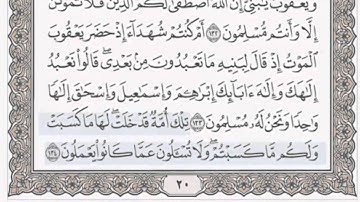 وَيَعْقُوبُ يَٰبَنِىَّ إِنَّ ٱللَّهَ ٱصْطَفَىٰ لَكُمُ ٱلدِّينَ فَلَا تَمُوتُنَّ
إِلَّا وَأَنتُم مُّسْلِمُونَ ١٣٢ أَمْ كُنتُمْ شُهَدَآءَ إِذْ حَضَرَ يَعْقُوبَ
ٱلْمَوْتُ إِذْ قَالَ لِبَنِيهِ مَا تَعْبُدُونَ مِنۢ بَعْدِى قَالُوا۟ نَعْبُدُ
إِلَٰهَكَ وَإِلَٰهَ ءَابَآئِكَ إِبْرَٰهِـۧمَ وَإِسْمَٰعِيلَ وَإِسْحَٰقَ إِلَٰهًا
وَٰحِدًا وَنَحْنُ لَهُۥ مُسْلِمُونَ ١٣٣ تِلْكَ أُمَّةٌ قَدْ خَلَتْ ۖ لَهَا مَا كَسَبَتْ
وَلَكُم مَّا كَسَبْتُمْ ۖ وَلَا تُسْـَٔلُونَ عَمَّا كَانُوا۟ يَعْمَلُونَ ١٣٤
٢٠